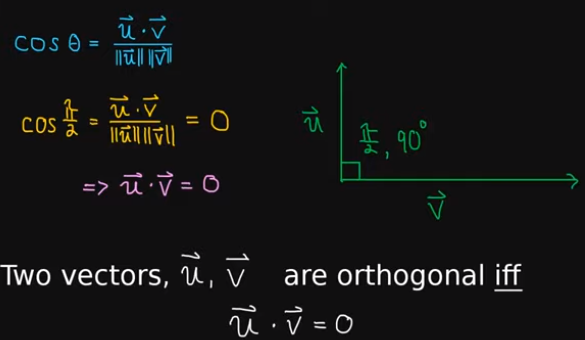 cos θ = u⃗ · v⃗ / ||u⃗|| ||v⃗||
cos π/2 = u⃗ · v⃗ / ||u⃗|| ||v⃗|| = 0
=> u⃗ · v⃗ = 0
u⃗
π/2, 90°
v⃗
Two vectors, u⃗, v⃗ are orthogonal iff
u⃗ · v⃗ = 0